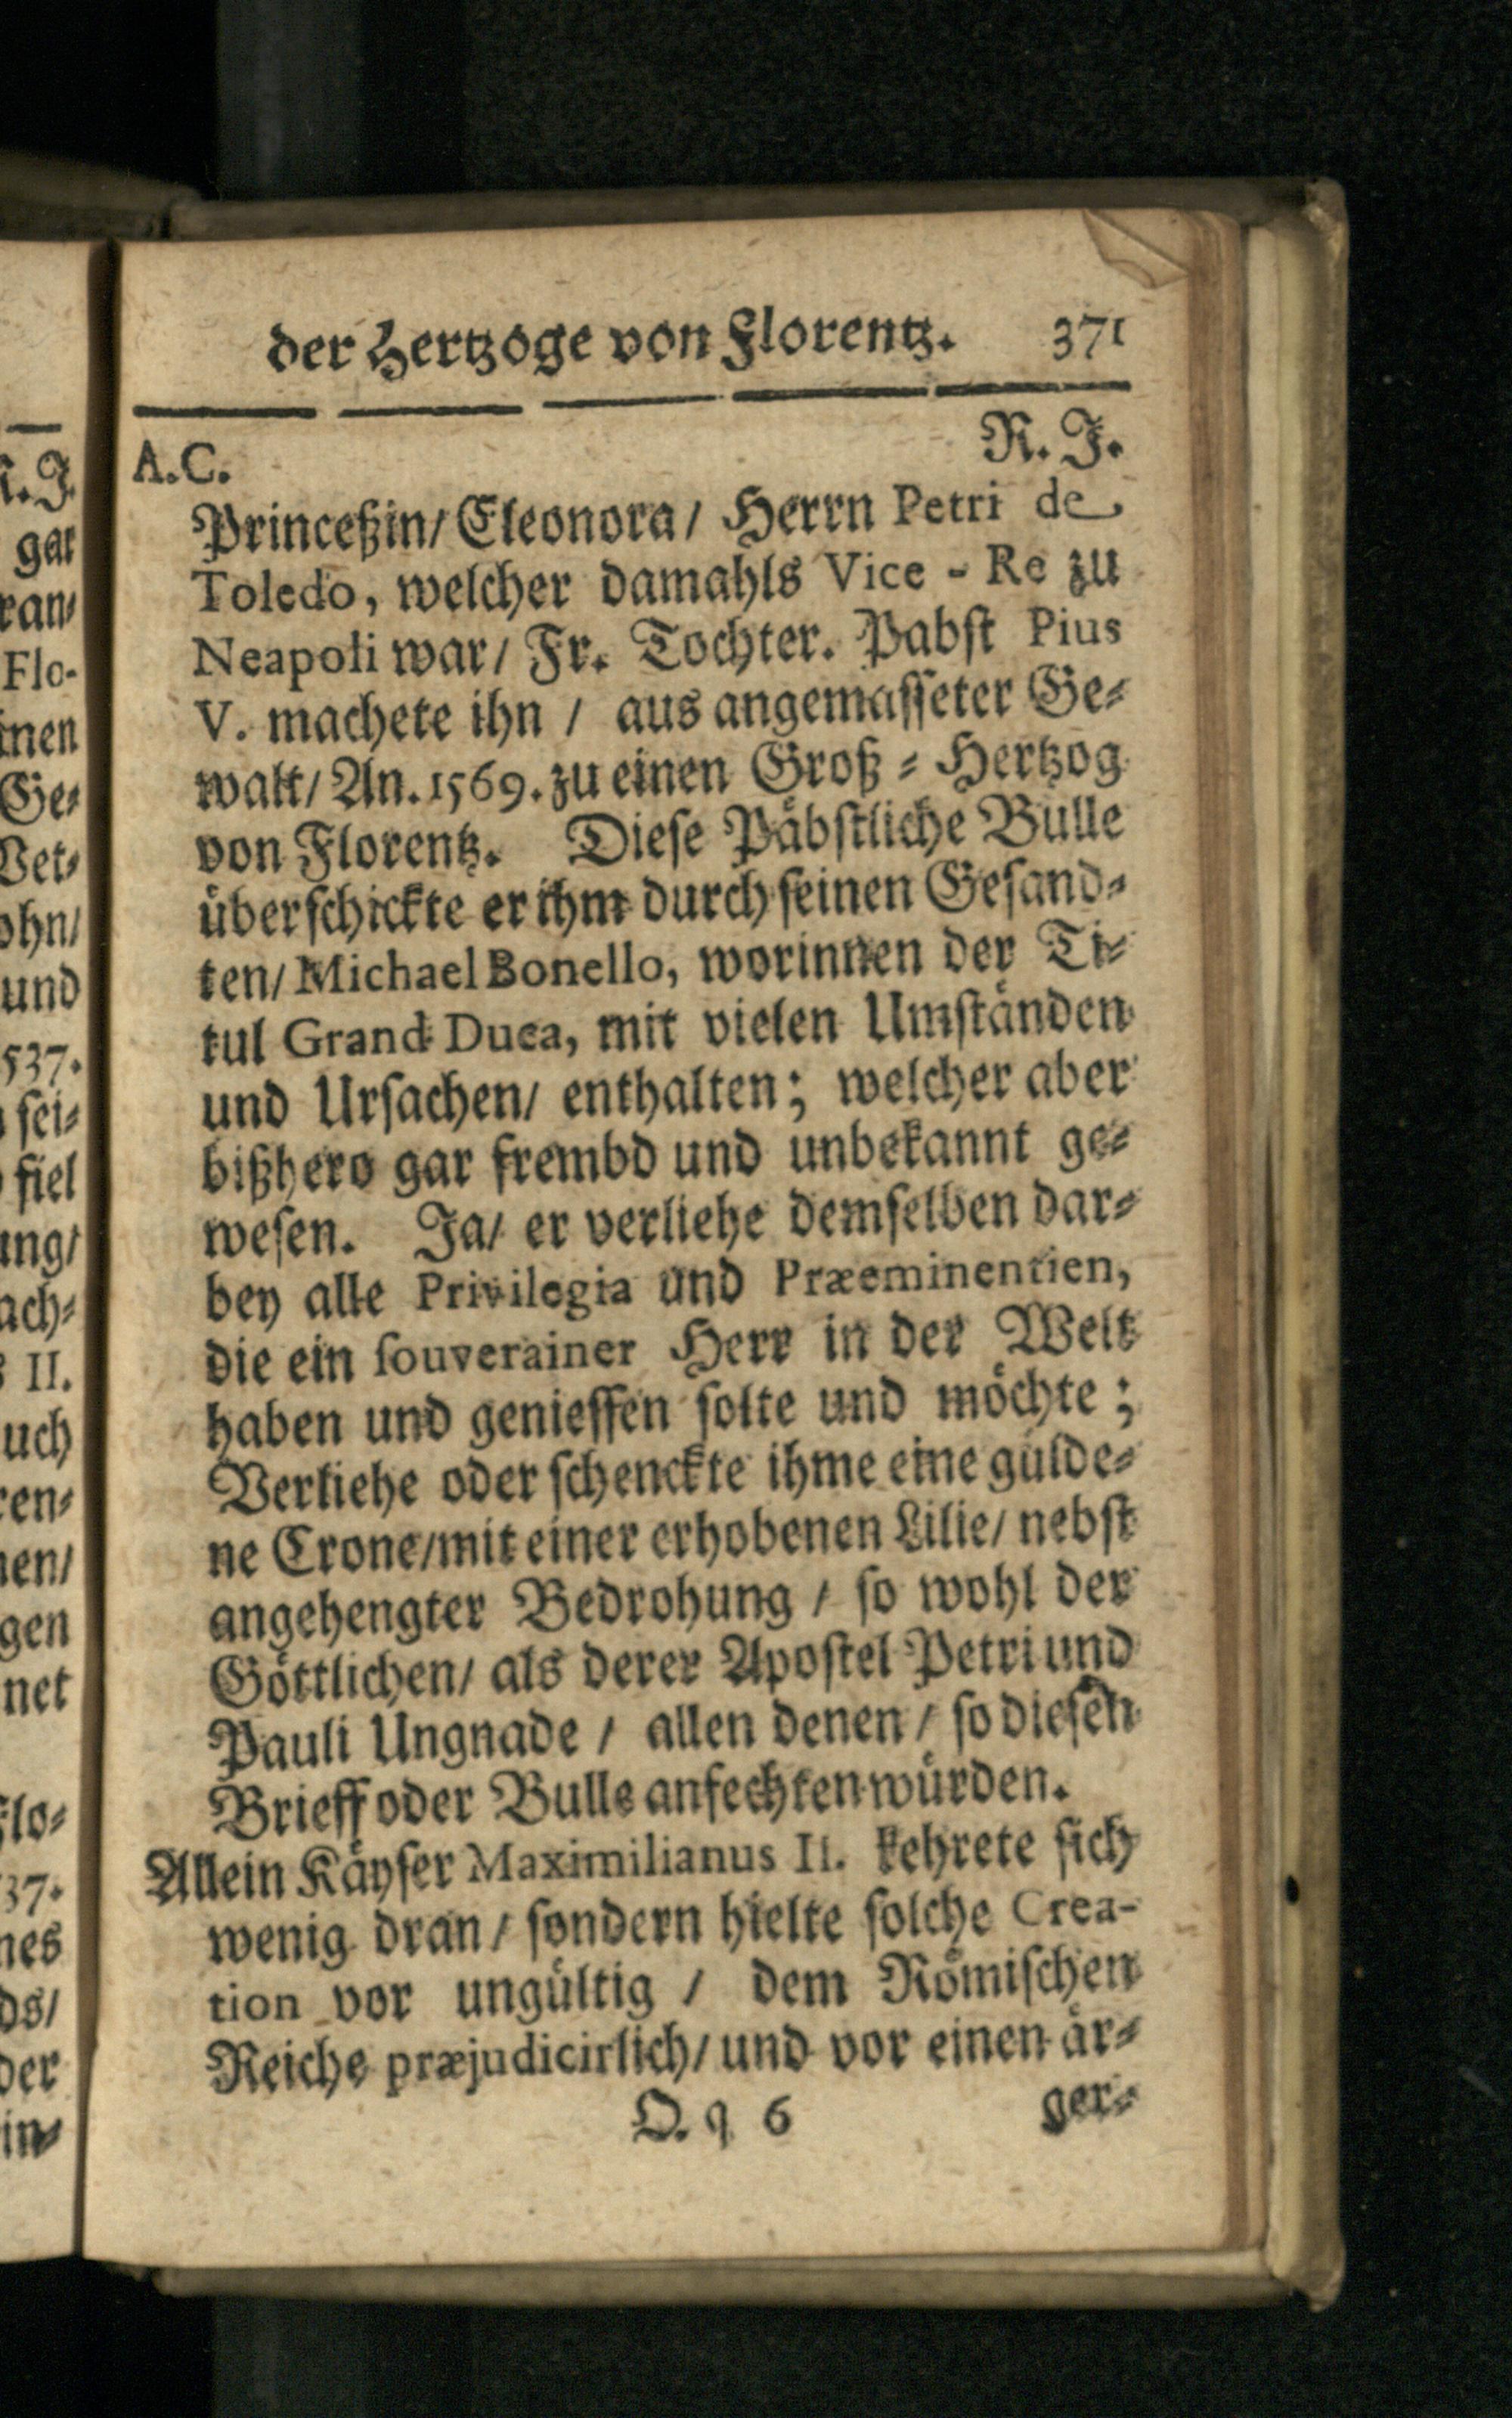 der Hertzoge von Florentz. 371
A.C. R. J.
Princeßin/ Eleonora/ Herrn Petri de
Toledo, welcher damahls Vice-Re zu
Neapoli war/ Fr. Tochter. Pabst Pius
V. machete ihn / aus angemasseter Ge-
walt/ An. 1569. zu einen Groß-Hertzog
von Florentz. Diese Päbstliche Bulle
überschickte er ihm durch seinen Gesand-
ten/ Michael Bonello, worinnen der Ti-
tul Grand Duca, mit vielen Umständen
und Ursachen/ enthalten; welcher aber
bißhero gar frembd und unbekannt ge-
wesen. Ja/ er verliehe demselben dar-
bey alle Privilegia und Præeminentien,
die ein souverainer Herr in der Welt
haben und geniessen solte und möchte;
Verliehe oder schenckte ihme eine gülde-
ne Crone/mit einer erhobenen Lilie/ nebst
angehengter Bedrohung / so wohl der
Göttlichen/ als derer Apostel Petri und
Pauli Ungnade / allen denen / so diesen
Brieff oder Bulle anfechten würden.
Allein Käyser Maximilianus II. kehrete sich
wenig dran / sondern hielte solche Crea-
tion vor ungültig / dem Römischen
Reiche præjudicirlich/ und vor einen är-
Q q 6 ger-
R. J.
gar
ran-
Flo-
inen
Ge-
Vet-
ohn/
und
537.
sei-
fiel
ung/
ach-
II.
uch
ren-
nen/
gen
net
Flo-
37.
nes
ds/
der
in-